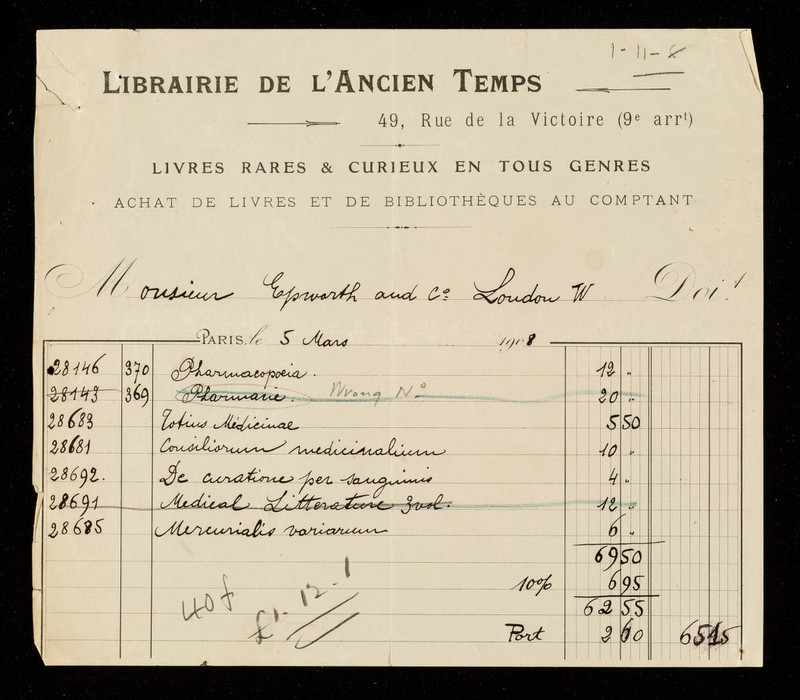 1-11-8
LIBRAIRIE DE L'ANCIEN TEMPS
49, Rue de la Victoire (9e arrt)
LIVRES RARES & CURIEUX EN TOUS GENRES
ACHAT DE LIVRES ET DE BIBLIOTHÈQUES AU COMPTANT
Monsieur Epworth and Co London W Doit
PARIS, le 5 Mars 1908
28146 370 Pharmacopoeia. 12 "
28143 369 Pharmacie. Wrong No 20 "
28683 Totius Medicinae 5 50
28681 Consiliorum medicinalium 10 "
28692. De curatione per sanguinis 4 "
28691 Medical Litterature 3 vol. 12 "
28685 Mercurialis variarum 6 "
69 50
10% 6 95
40 f £1-12-1 62 55
Port 2 60 65 15